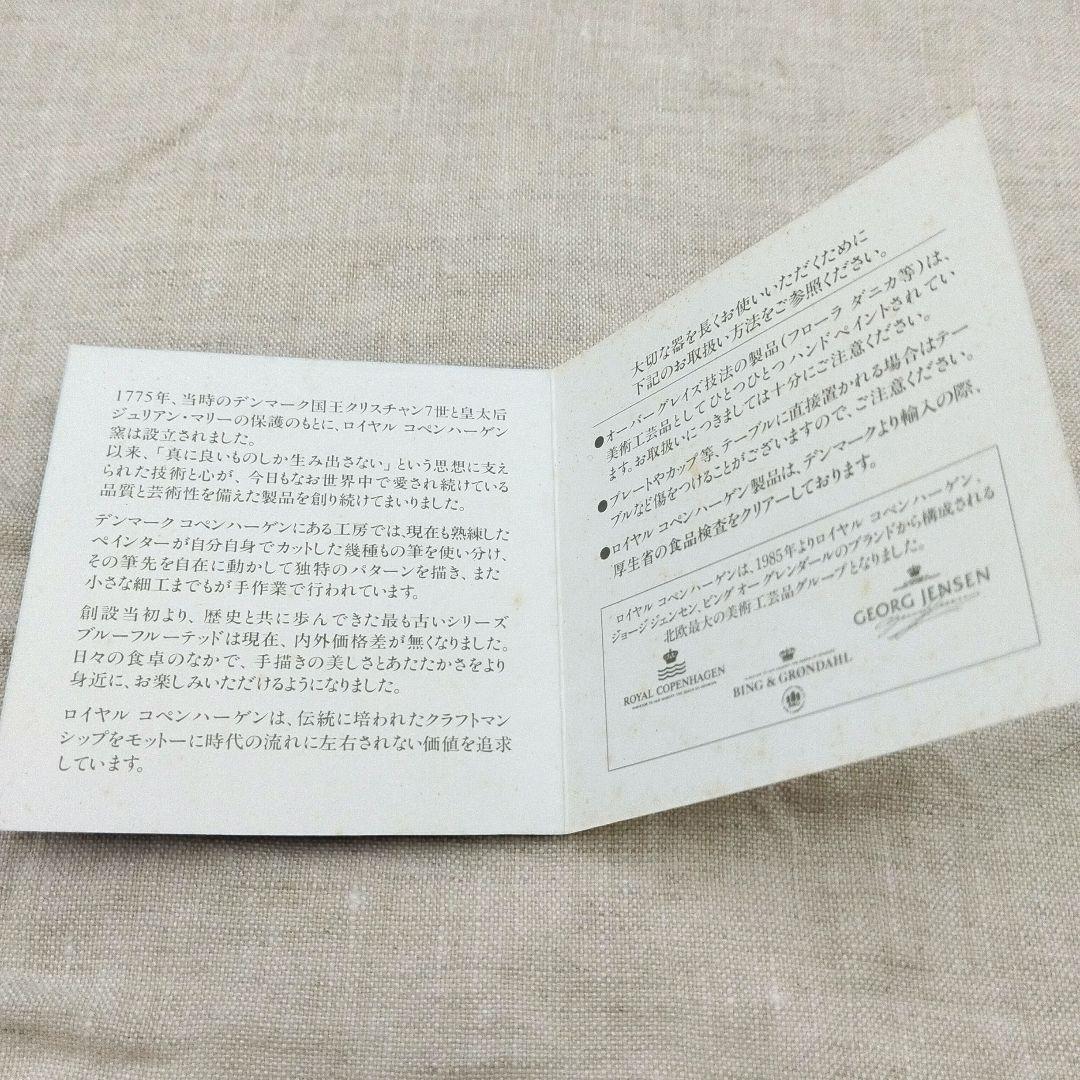 1775年、当時のデンマーク国王クリスチャン7世と皇太后
ジュリアン・マリーの保護のもとに、ロイヤル コペンハーゲン
窯は設立されました。
以来、「真に良いものしか生み出さない」という思想に支え
られた技術と心が、今日もなお世界中で愛され続けている
品質と芸術性を備えた製品を創り続けてまいりました。
デンマーク コペンハーゲンにある工房では、現在も熟練した
ペインターが自分自身でカットした幾種もの筆を使い分け、
その筆先を自在に動かして独特のパターンを描き、また
小さな細工までもが手作業で行われています。
創設当初より、歴史と共に歩んできた最も古いシリーズ
ブルーフルーテッドは現在、内外価格差が無くなりました。
日々の食卓のなかで、手描きの美しさとあたたかさをより
身近に、お楽しみいただけるようになりました。
ロイヤル コペンハーゲンは、伝統に培われたクラフトマン
シップをモットーに時代の流れに左右されない価値を追求
しています。
大切な器を長くお使いいただくために
下記のお取扱い方法をご参照ください。
●オーバーグレイズ技法の製品(フローラ ダニカ等)は、
美術工芸品としてひとつひとつ ハンドペイントされてい
ます。お取扱いにつきましては十分にご注意ください。
●プレートやカップ等、テーブルに直接置かれる場合はテー
ブルなど傷をつけることがございますので、ご注意ください。
●ロイヤル コペンハーゲン製品は、デンマークより輸入の際、
厚生省の食品検査をクリアーしております。
ロイヤル コペンハーゲンは、1985年よりロイヤル コペンハーゲン、
ジョージ ジェンセン、ビング オー グレンダールのブランドから構成される
北欧最大の美術工芸品グループとなりました。
ROYAL COPENHAGEN
BING & GRØNDAHL
GEORG JENSEN